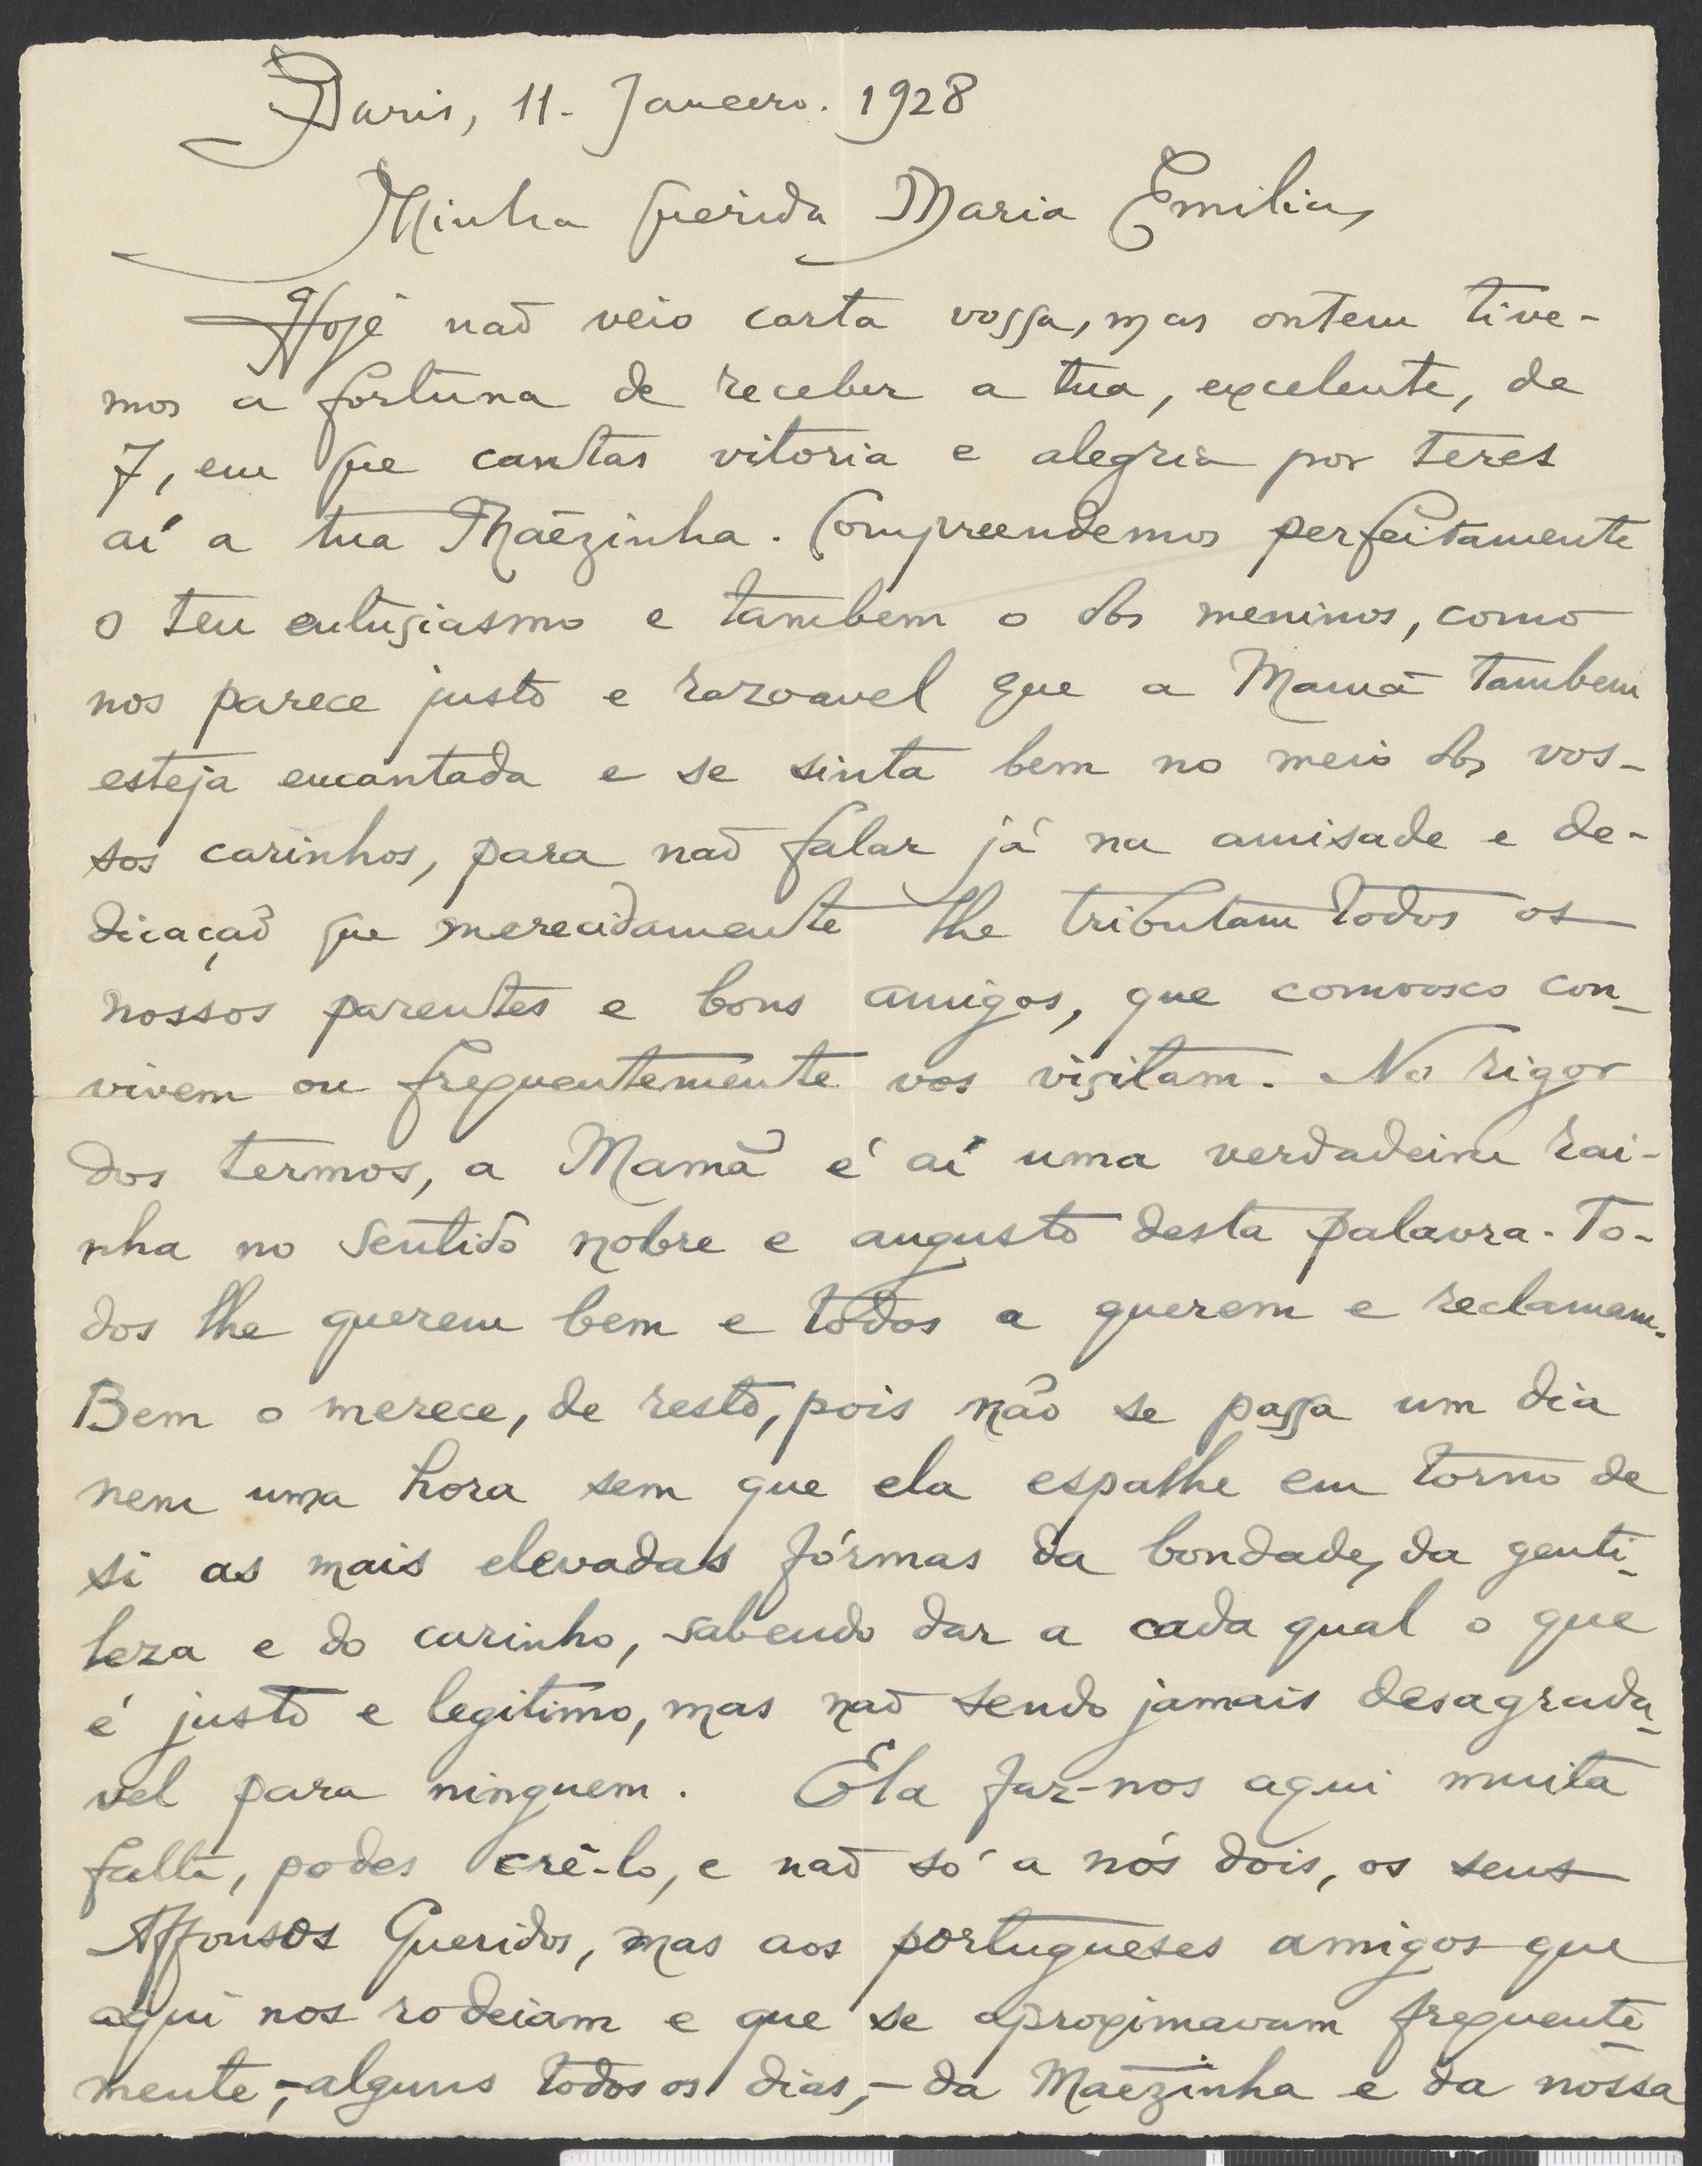 Paris, 11. Janeiro. 1928
Minha querida Maria Emilia,
Hoje não veio carta vossa, mas ontem tive-
mos a fortuna de receber a tua, excelente, de
7, em que cantas vitoria e alegria por teres
aí a tua Mãezinha. Compreendemos perfeitamente
o teu entusiasmo e tambem o dos meninos, como
nos parece justo e razoavel que a Mamã tambem
esteja encantada e se sinta bem no meio dos vos-
sos carinhos, para não falar já na amisade e de-
dicação que merecidamente lhe tributam todos os
nossos parentes e bons amigos, que comvosco con-
vivem ou frequentemente vos visitam. No rigor
dos termos, a Mamã é aí uma verdadeira rai-
nha no sentido nobre e augusto desta palavra. To-
dos lhe querem bem e todos a querem e reclamam.
Bem o merece, de resto, pois não se passa um dia
nem uma hora sem que ela espalhe em torno de
si as mais elevadas fórmas da bondade, da genti-
leza e do carinho, sabendo dar a cada qual o que
é justo e legitimo, mas não sendo jamais desagrada-
vel para ninguem. Ela faz-nos aqui muita
falta, podes crê-lo, e não só a nós dois, os seus
Affonsos Queridos, mas aos portugueses amigos que
aqui nos rodeiam e que se aproximavam frequente-
mente,-alguns todos os dias,-da Mãezinha e da nossa